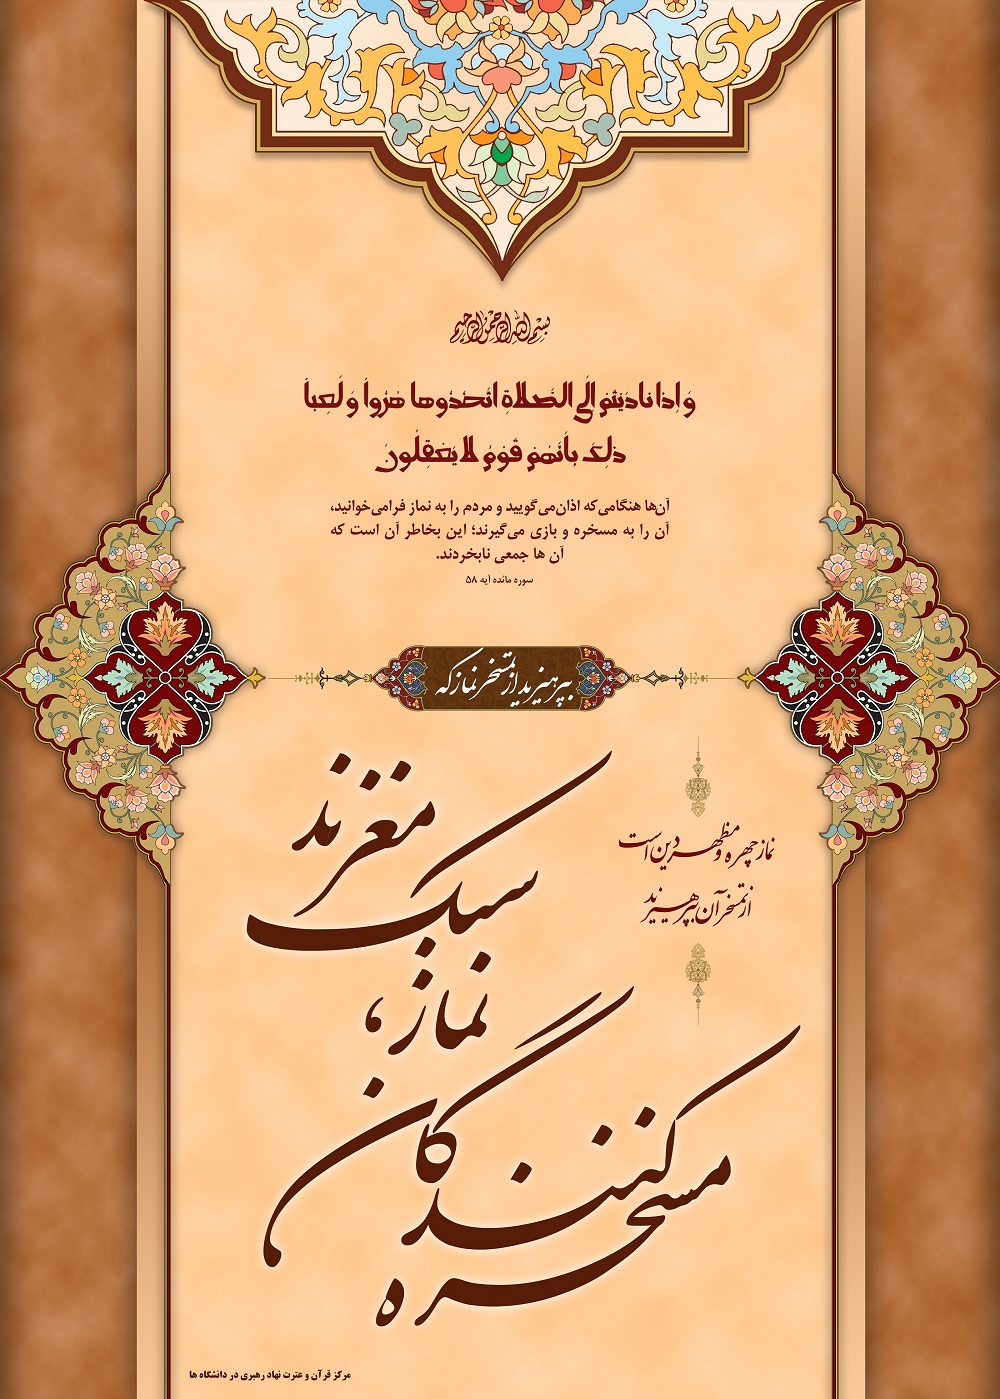 بسم الله الرحمن الرحیم
وَ إِذا نادَیْتُمْ إِلَی الصَّلاةِ اتَّخَذُوها هُزُواً وَ لَعِباً
ذلِکَ بِأَنَّهُمْ قَوْمٌ لا یَعْقِلُونَ
آن‌ها هنگامی‌که اذان‌می‌گویید و مردم را به نماز فرامی‌خوانید،
آن را به مسخره و بازی می‌گیرند؛ این بخاطر آن است که
آن ها جمعی نابخردند.
سوره مائده آیه ۵۸
بپرهیزید از تمسخر نماز که
نماز چهره و مظهر دین است
از تمسخر آن بپرهیزید
مسخره
کنندگان
نماز،
سبک
مغزند
مرکز قرآن و عترت نهاد رهبری در دانشگاه ها